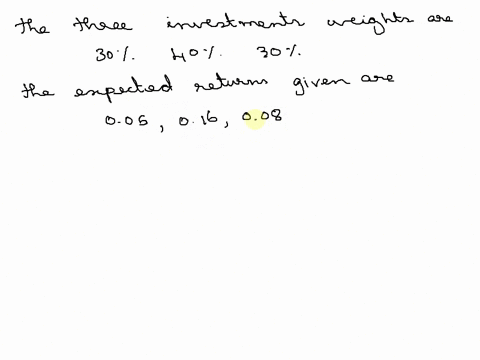 the three investments weights are
30%. 40%. 30%.
the expected returns given are
0.05, 0.16, 0.08